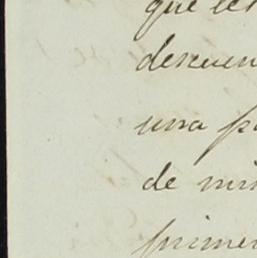 que les
descuen
una pa
de min
primer